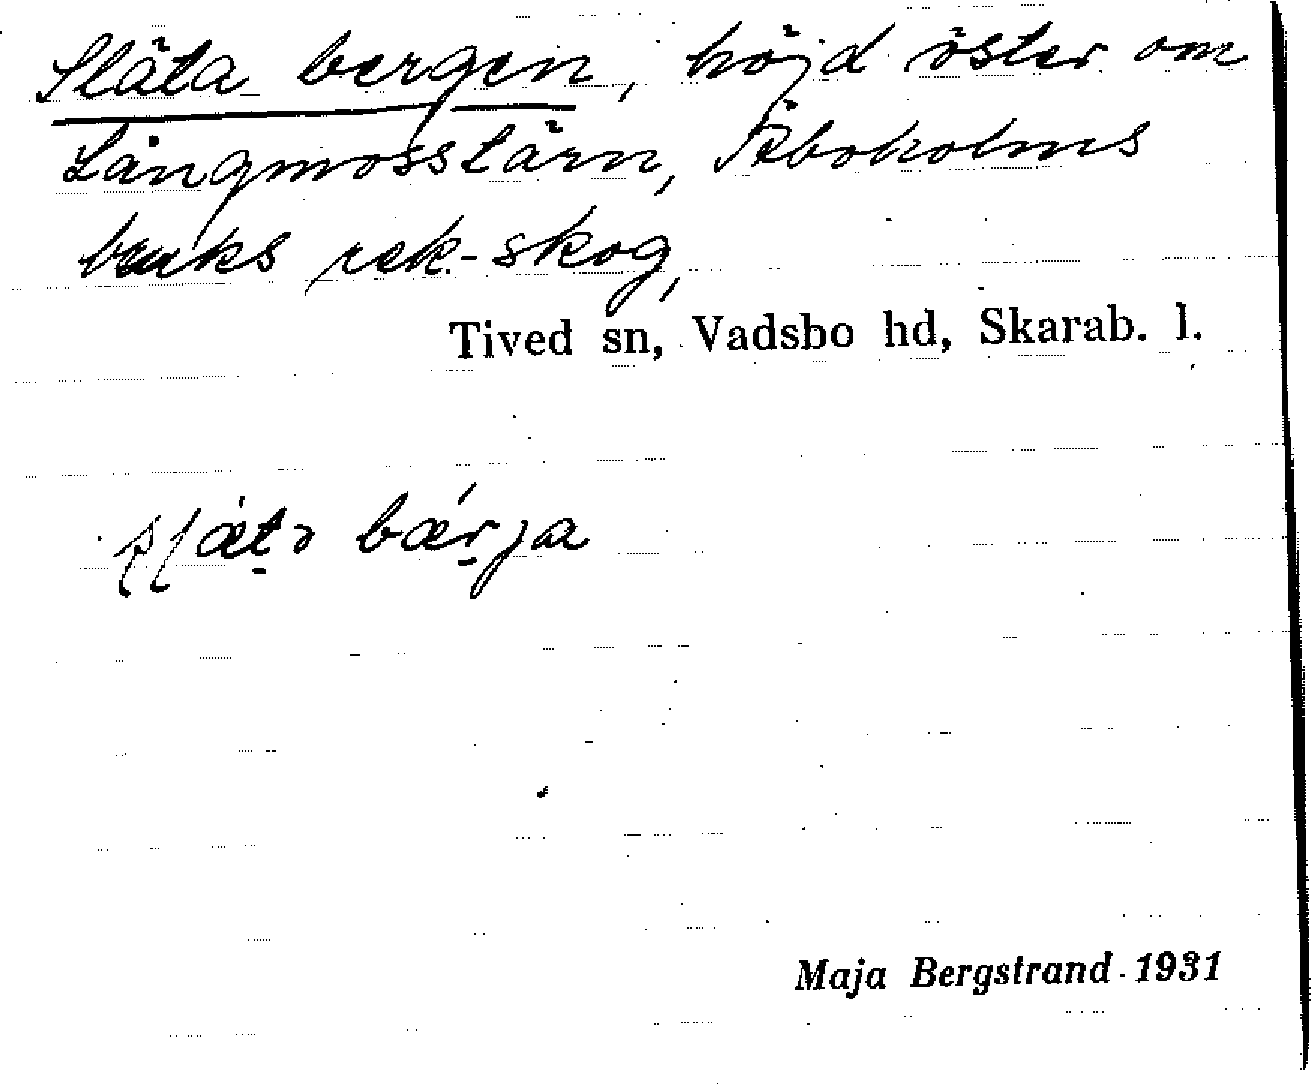 Släta bergen, höjd öster om
Långmosstärn, Åboholms
bruks rek.-skog,
Tived sn, Vadsbo hd, Skarab. l.
bærja
Maja Bergstrand 1931